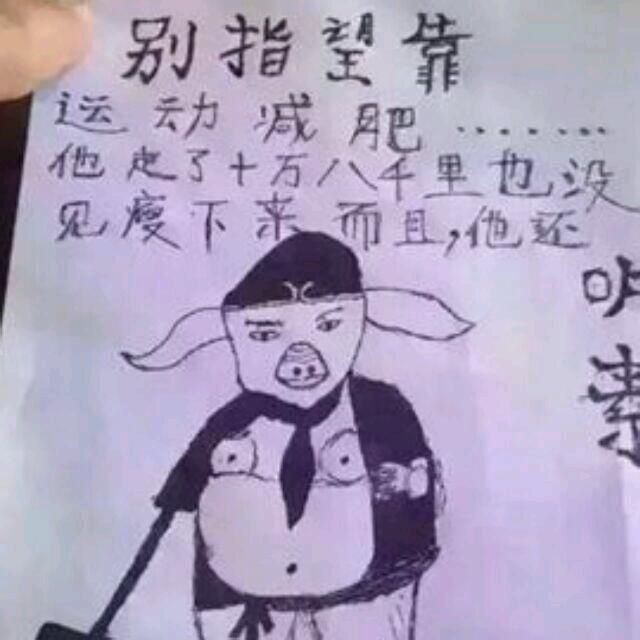 别指望靠
运动减肥........
他走了十万八千里也没
见瘦下来 而且,他还
吃
素